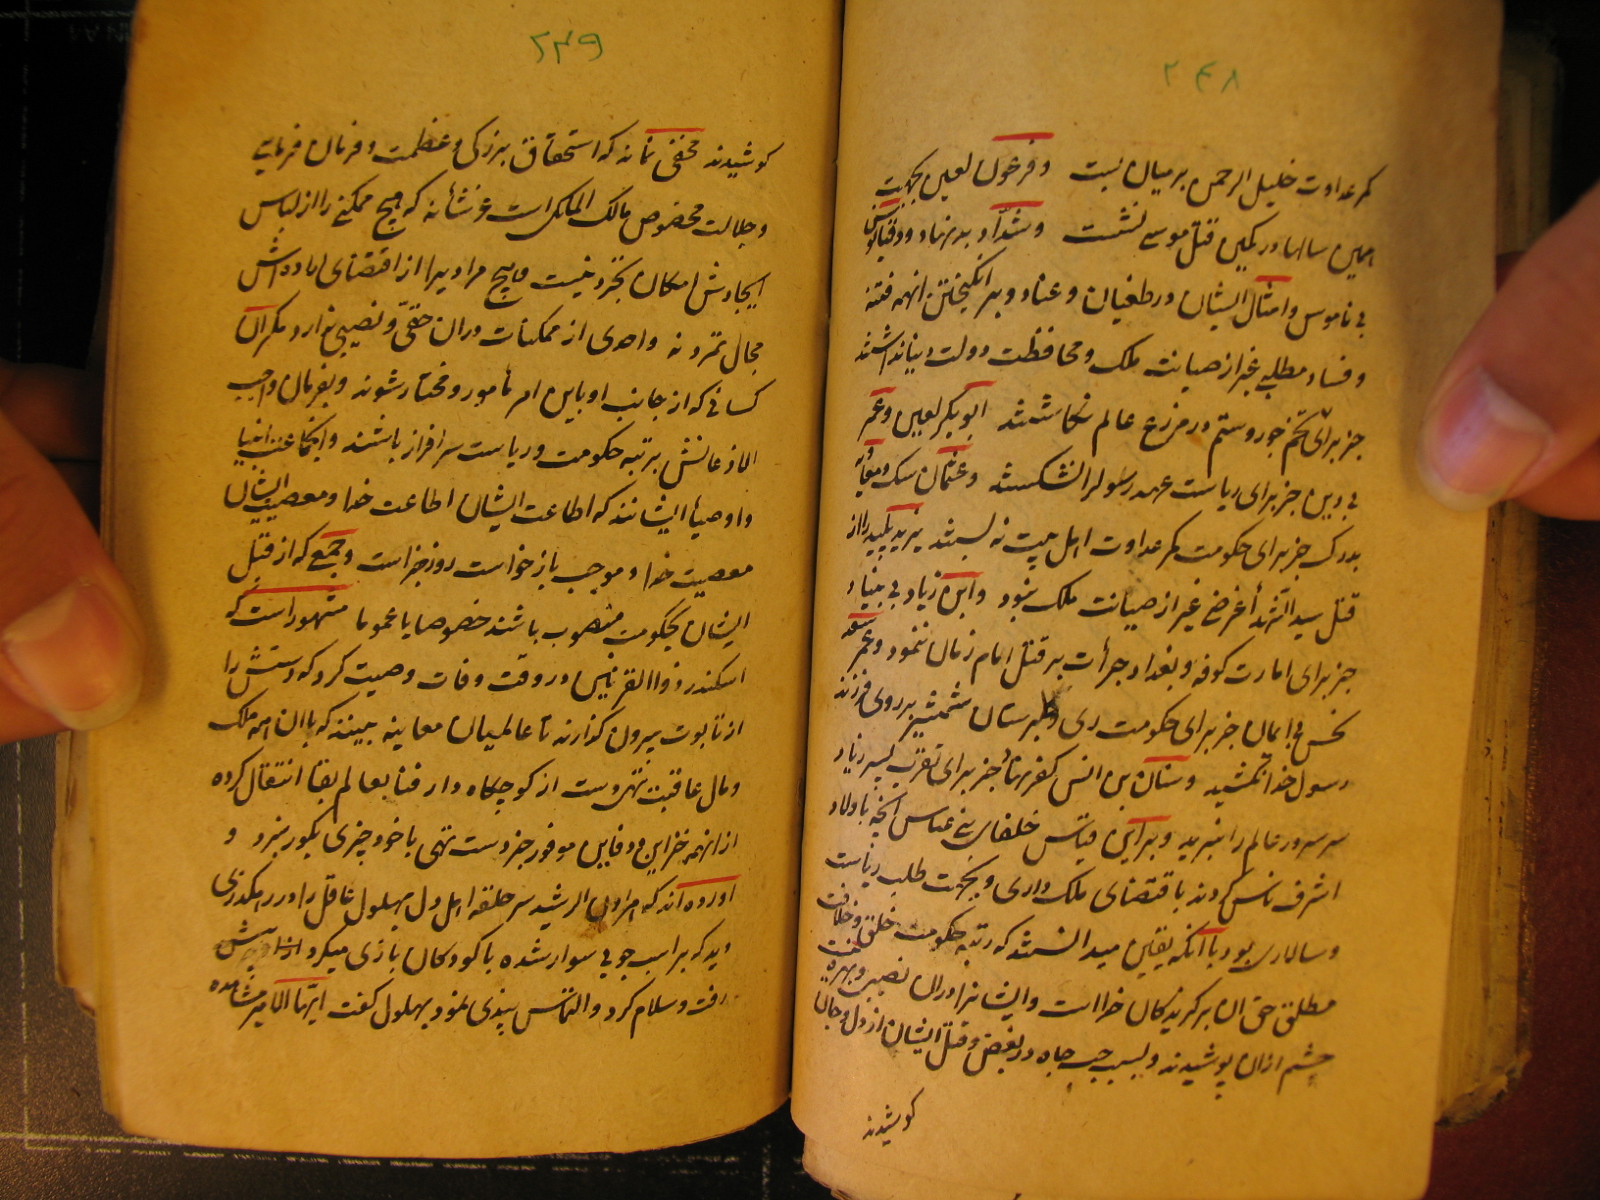 ۲۴۸
کمر عداوت خلیل الرحمن بر میان بست و فرعون لعین بجهت
همین سالها در کمین قتل موسی نشست و شداد بد نهاد و دقیانوس
بی ناموس و امثال ایشان در طغیان و عناد و بر انگیختن انهمه فتنه
و فساد مطلبی غیر از صیانت ملک و محافظت دولت دنیا نداشتند
جز برای تخم جور و ستم در مزرع عالم نکاشتند ابو بکر لعین و عمر
بی دین جز برای ریاست عهد رسولرا نشکستند و عثمان سک و معاویه
بدرک جز برای حکومت کمر عداوت اهل بیت نه بستند یزید پلید را از
قتل سید الشهدأ غرضی غیر از صیانت ملک نبود و ابن زیاد بی بنیاد
جز برای امارت کوفه و بغداد جرأت بر قتل امام زمان ننمود و عمر سعد
نحس بی ایمان جز برای حکومت ری و طبرستان شمشیر بر روی فرزند
رسول خدا نکشید و سنان بن انس کفر نهاد جز برای تقرب پسر زیاد
سر سرور عالم را نبرید و بر این قیاس خلفای بنی عباس انچه با اولاد
اشرف ناس کردند باقتضای ملک داری و بجهت طلب ریاست
و سالاری بود با آنکه یقین میدانستند که رتبه حکومت خلق و خلافت
مطلق حق ان برکزیدکان خدا است و ایشانرا دران نصیب و بهره نیست
چشم ازان پوشیدند و بسبب حب جاه در بغض و قتل ایشان از دل و جان
کوشیدند
۲۴۹
کوشیدند مخفی نماند که استحقاق بزرکی و عظمت و فرمان فرمایی
و جلالت مخصوص مالک الملکی است عز شأنه که هیچ ممکنی را از لباس
ایجادش امکان تجرد نیست و هیچ مرادیرا از اقتضای اراده اش
مجال تمرد نه واحدی از ممکنات دران حقی و نصیبی ندارد مکر ان
کسانی که از جانب او باین امر مأمور و مختار شوند و بفرمان واجب
الاذعانش برتبه حکومت و ریاست سرافراز باشند و انجماعت انبیا
و اوصیاء ایشانند که اطاعت ایشان اطاعت خدا و معصیت ایشان
معصیت خدا و موجب بازخواست روز جزاست و جمعی که از قبل
ایشان بحکومت منصوب باشند خصوصا یا عموما مشهور است که
اسکندر ذوالقرنین در وقت وفات وصیت کرد که دستش را
از تابوت بیرون کذارند تا عالمیان معاینه ببینند که با ان همه ملک
و مال عاقبت تهی دست از کوچکاه دار فنا بعالم بقا انتقال کرده
از انهمه خزاین و دفاین موفور جز دست تهی با خود چیزی بکور نبرد و
آورده اند که هرون الرشید سر حلقه اهل دل بهلول عاقل را در رهکذری
دید که بر اسب چوبی سوار شده با کودکان بازی میکرد پیش
رفت و سلام کرد و التماس پندی نمود بهلول کفت ایها الامیر مشاهده